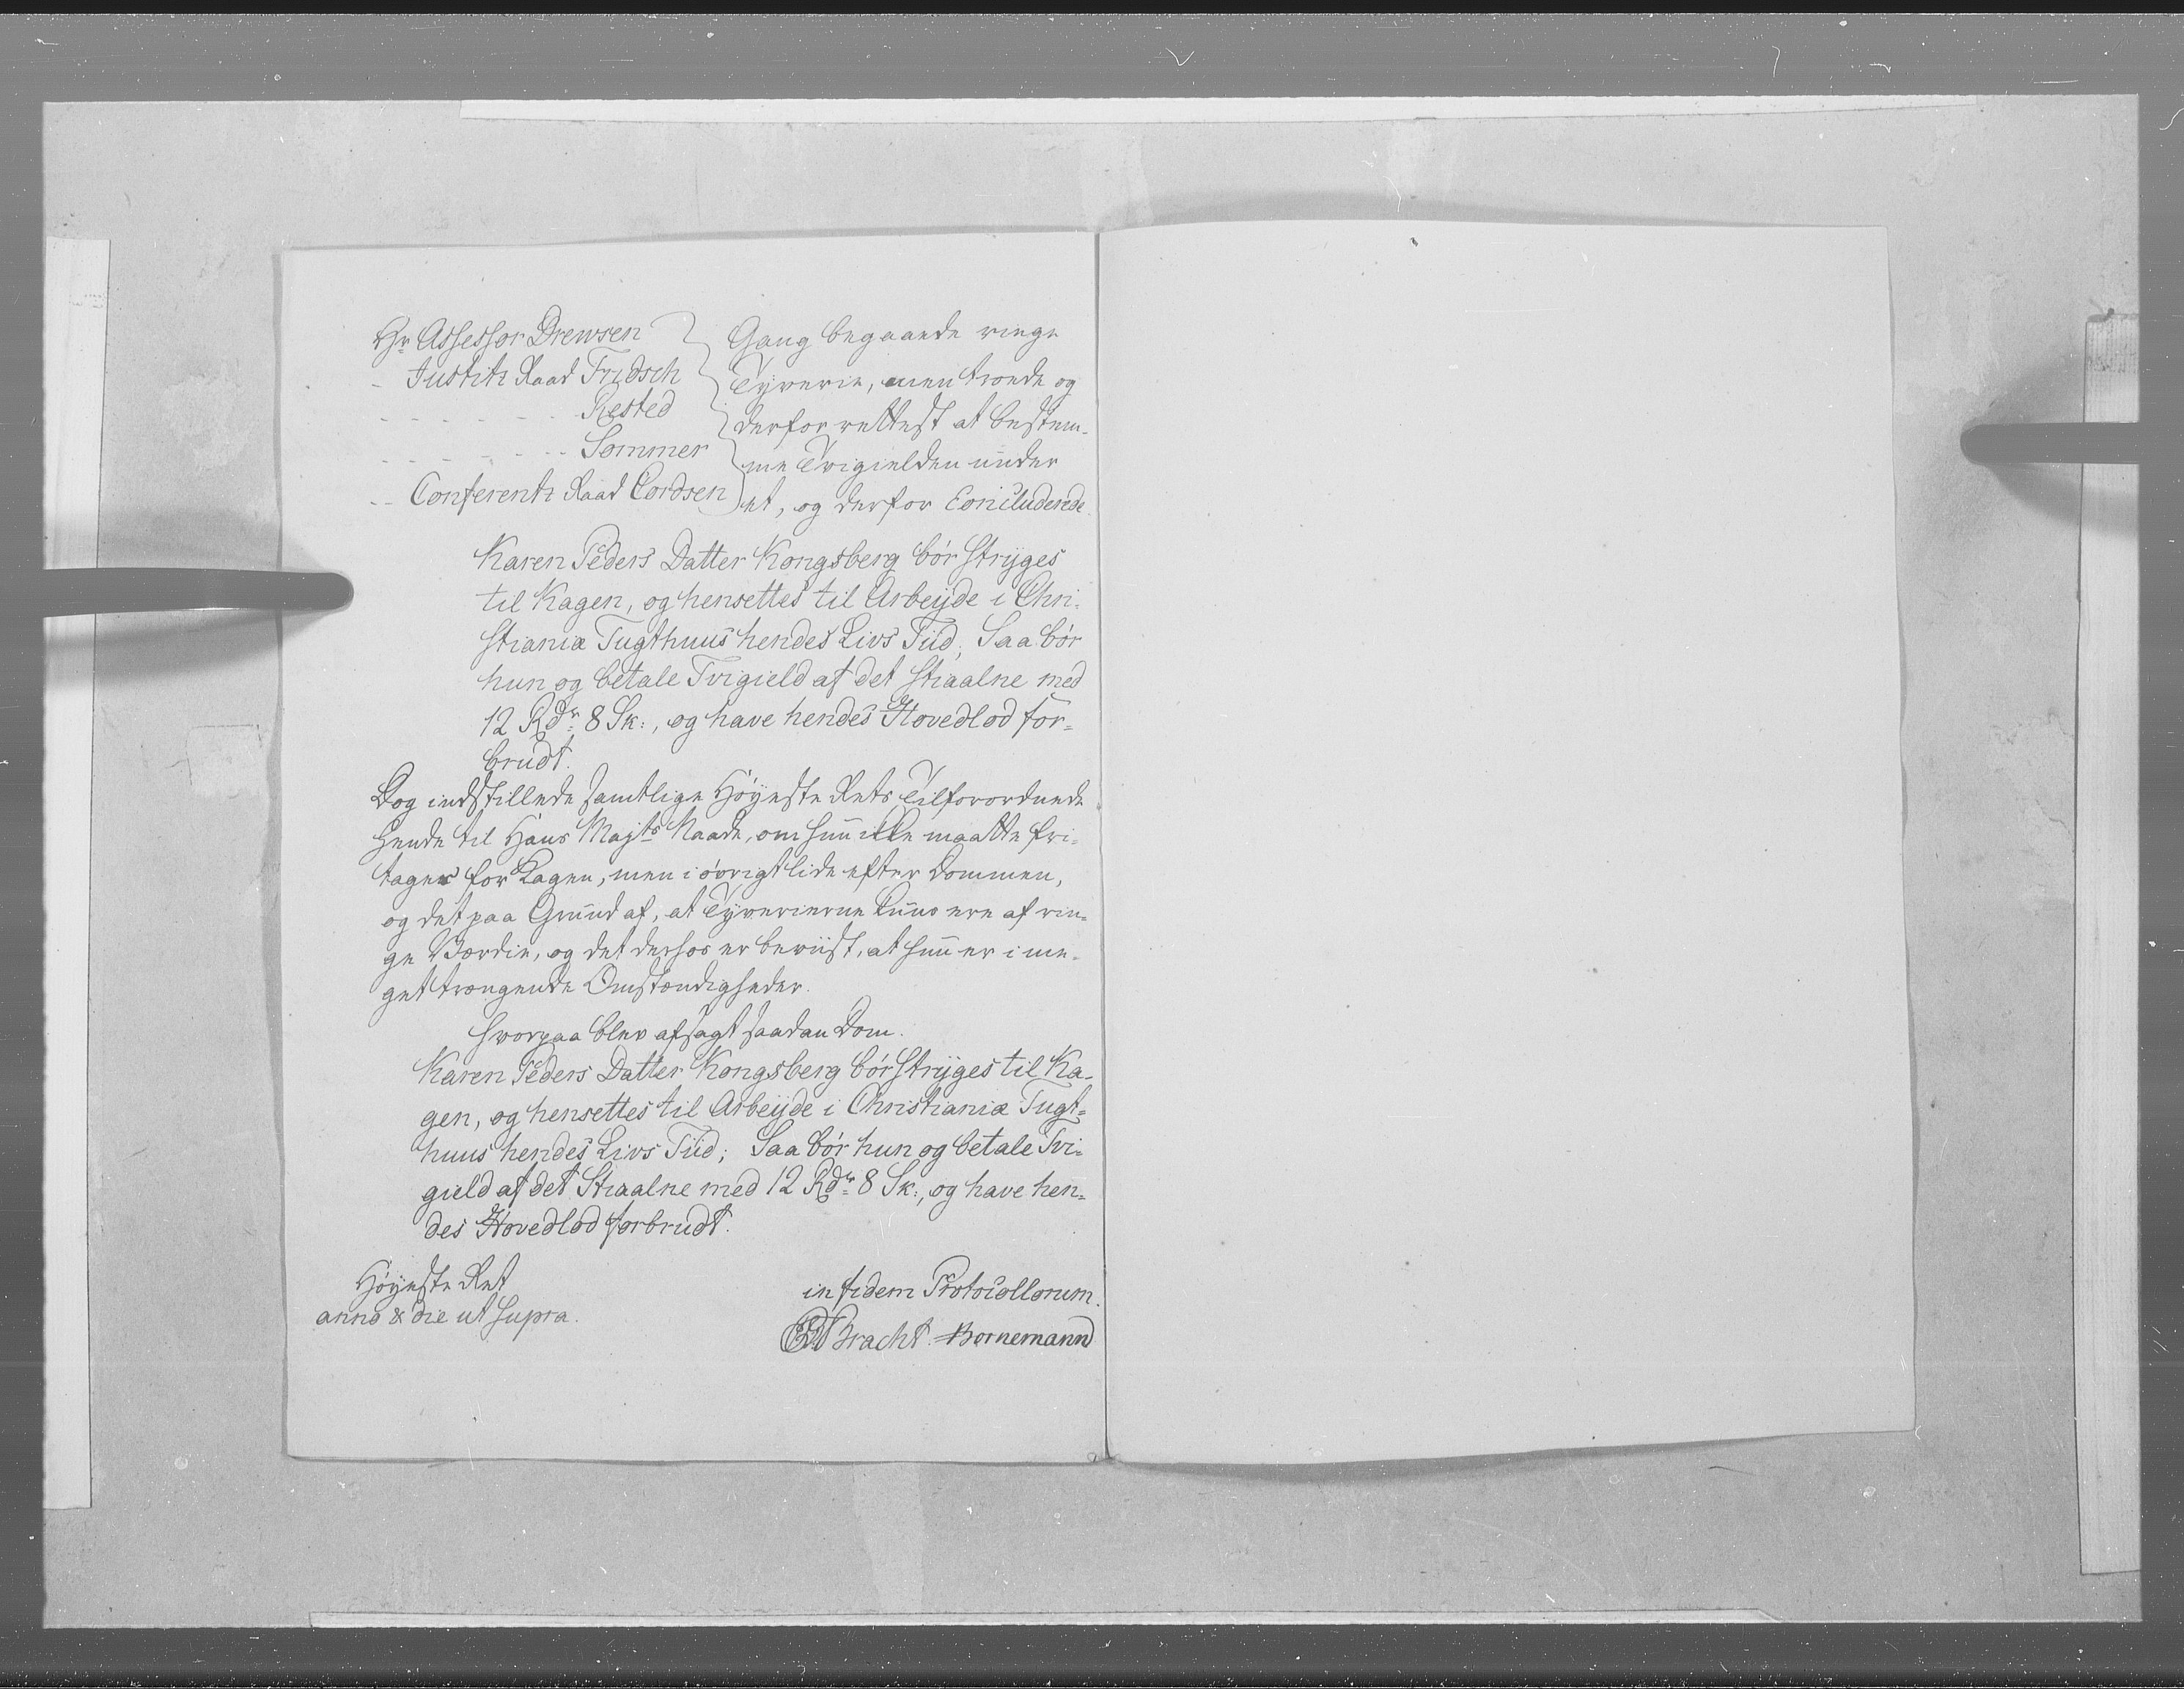 Hr Assessor Drewsen
- Justitz Raad Fridsch
- - - - - - - Rested
- - - - - - - Sommer
- - Conferentz Raad Cordsen
Gang begaaede ringe
Tyverie, men troede og
derfor rettest at bestem-
me Tvigielden under
et, og derfor Concluderede
Karen Peders Datter Kongsberg bör stryges
til Kagen, og hensettes til Arbeyde i Chri-
stianiæ Tugthuus hendes Livs Tiid; Saa bör
hun og betale Tvigield af det Stiaalne med
12 Rdr 8 Sk:, og have hendes Hovedlod for-
brudt.
Dog indstillede samtlige Höyeste Rets Tilforordnede
hende til Hans Majts Naade, om hun ikke maatte fri-
tages for Kagen, men i övrigt lide efter Dommen,
og det paa Grund af, at Tyverierne kuns ere af rin-
ge Værdie, og det derhos er beviist, at hun er i me-
get trængende Omstændigheder.
Hvorpaa blev afsagt saadan Dom.
Karen Peders Datter Kongsberg bör stryges til Ka-
gen, og hensettes til Arbeyde i Christianiæ Tugt-
huus hendes Livs Tiid; Saa bör hun og betale Tvi-
gield af det Stiaalne med 12 Rdr 8 Sk:, og have hen-
des Hovedlod forbrudt.
Höyeste Ret
anno & die ut supra.
in fidem Protocollorum.
Bracht. Bornemann